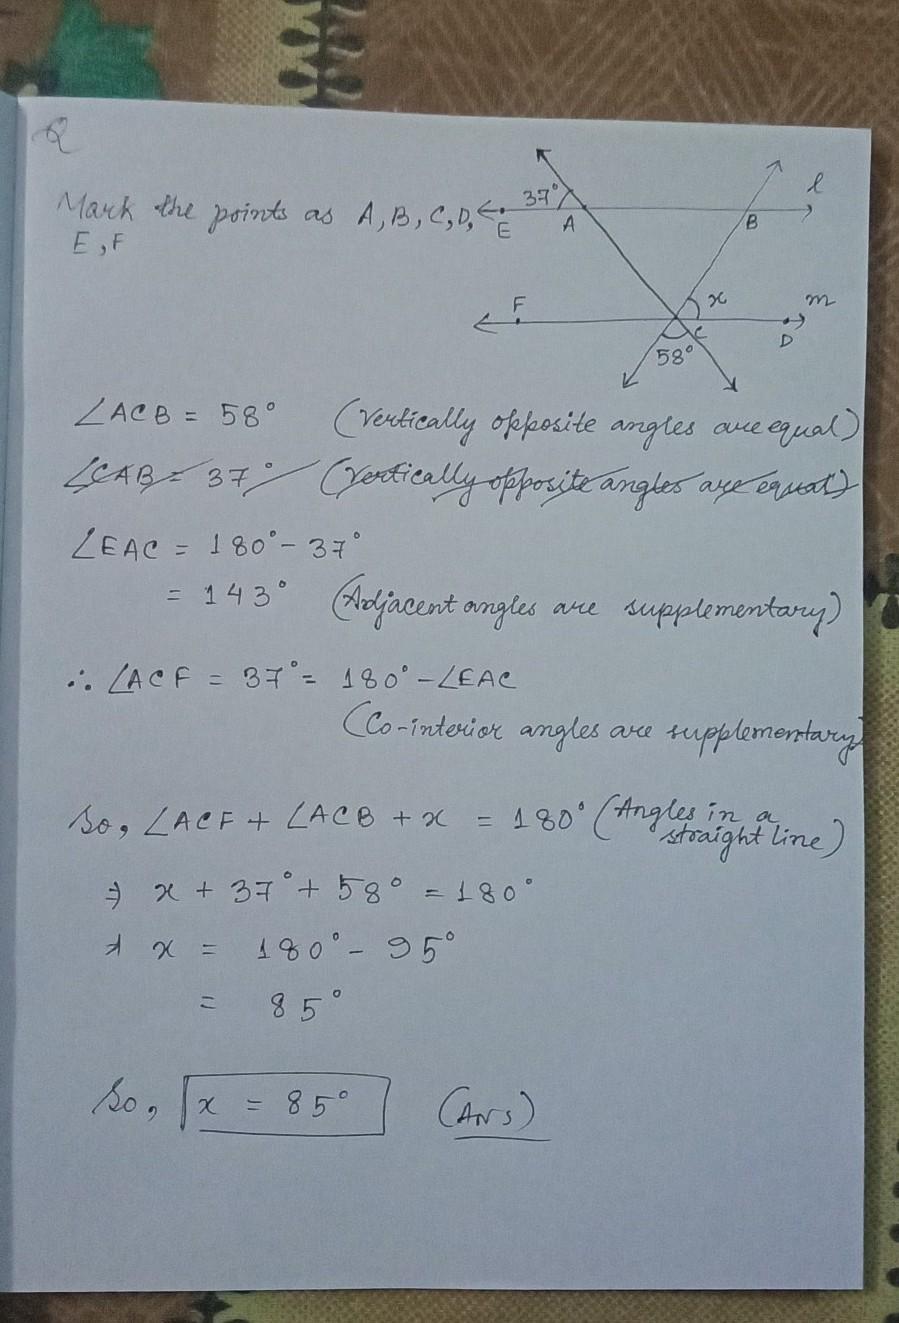 Q
Mark the points as A, B, C, D,
E, F
37°
A
E
B
l
F
x
m
C
D
58°
∠ACB = 58° (Vertically opposite angles are equal)
∠CAB = 37° (Vertically opposite angles are equal)
∠EAC = 180° - 37°
= 143° (Adjacent angles are supplementary)
∴ ∠ACF = 37° = 180° - ∠EAC
(Co-interior angles are supplementary)
So, ∠ACF + ∠ACB + x = 180° (Angles in a
straight line)
⇒ x + 37° + 58° = 180°
⇒ x = 180° - 95°
= 85°
So, x = 85° (Ans)